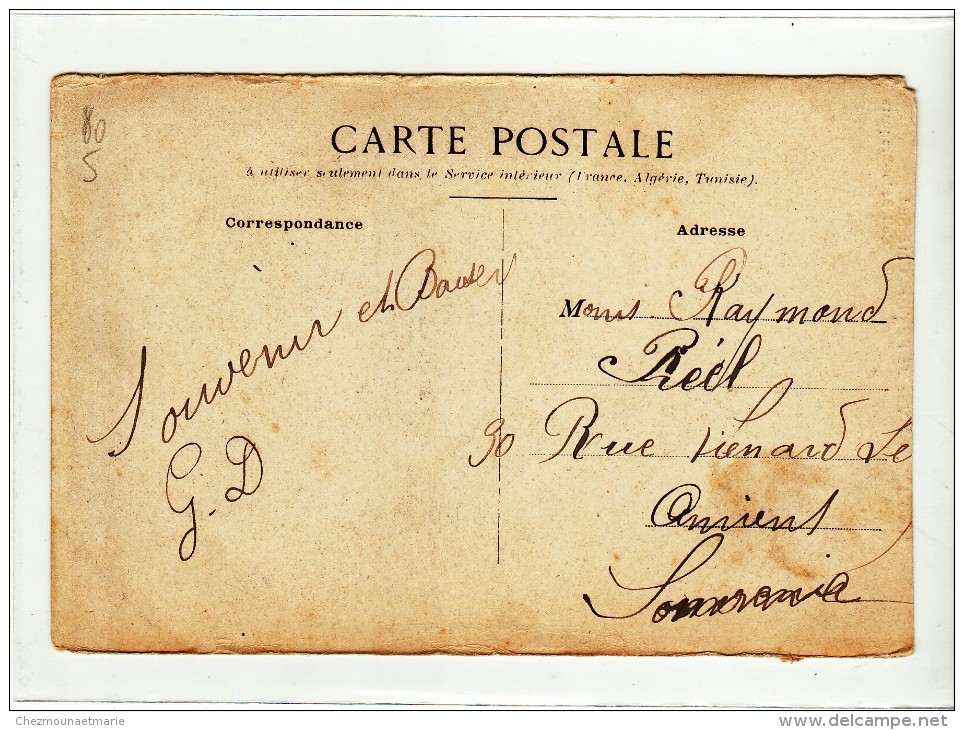 80
5
CARTE POSTALE
à utiliser seulement dans le Service intérieur (France, Algérie, Tunisie).
Correspondance
Souvenir et Baiser
G. D
Adresse
Mons Raymond
Réèl
90 Rue Lienard Le
Amiens
Chezmounaetmarie
www.delcampe.net